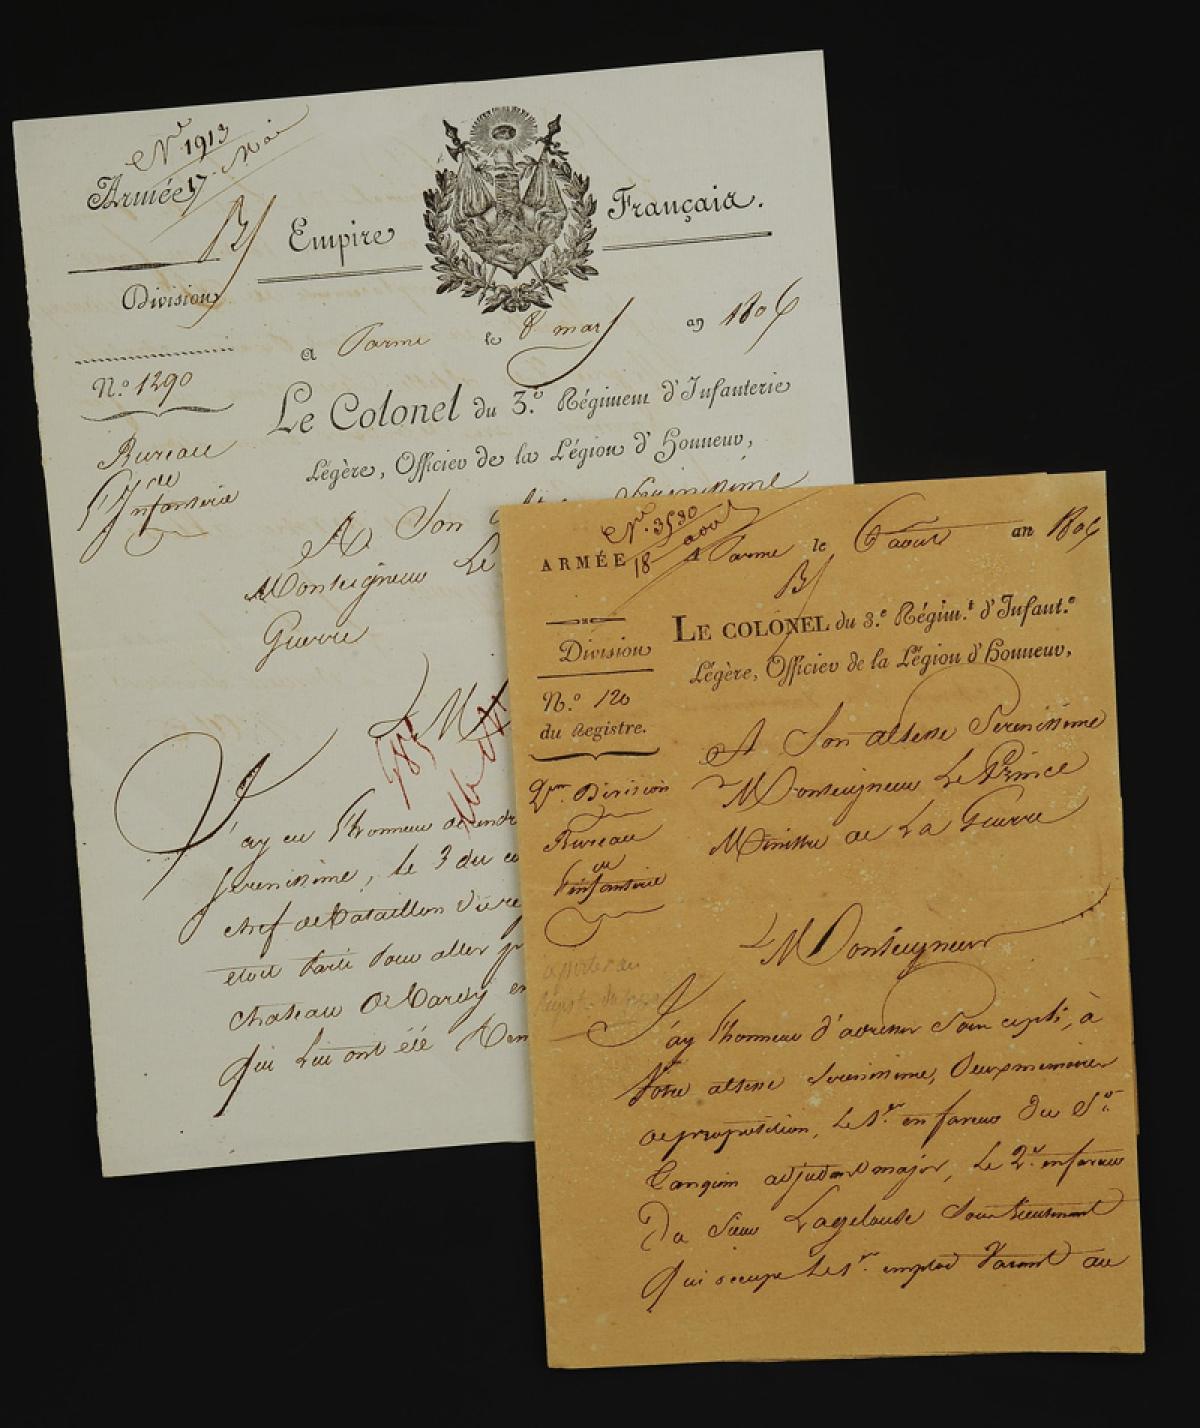 Nº 1913
17 Mai
Armée
Empire Français.
Division
a Parme le 8 mars an 1806
N.º 1290
Le Colonel du 3.e Régiment d'Infanterie
Légère, Officier de la Légion d'Honneur,
Bureau
d'Infanterie
A Son Serenissime
Monseigneur Le
Guerre
485
J'ay eu l'honneur de rendre
Serenissime, le 3 du co
chef de Bataillon
etoit parti pour aller
chateau de Bardy en
qui lui ont été
Nº 3530
18 aout
ARMÉE
A Parme le 6 aout an 1806
LE COLONEL du 3.e Régim.t d'Infant.e
Légère, Officier de la Légion d'Honneur,
Division
N.º 120
du Registre.
A Son altesse Serenissime
Monseigneur Le Prince
Ministre de La Guerre
2me Division
Bureau
de
l'infanterie
Monseigneur
J'ay l'honneur d'adresser sous ce pli, à
Votre altesse Serenissime, Deux memoires
de proposition, le 1er en faveur du Sr
Cangium adjudant major, le 2e en faveur
Du Sieur Lagelouse Sous Lieutenant
qui occupe le 1er emploi Vacant au